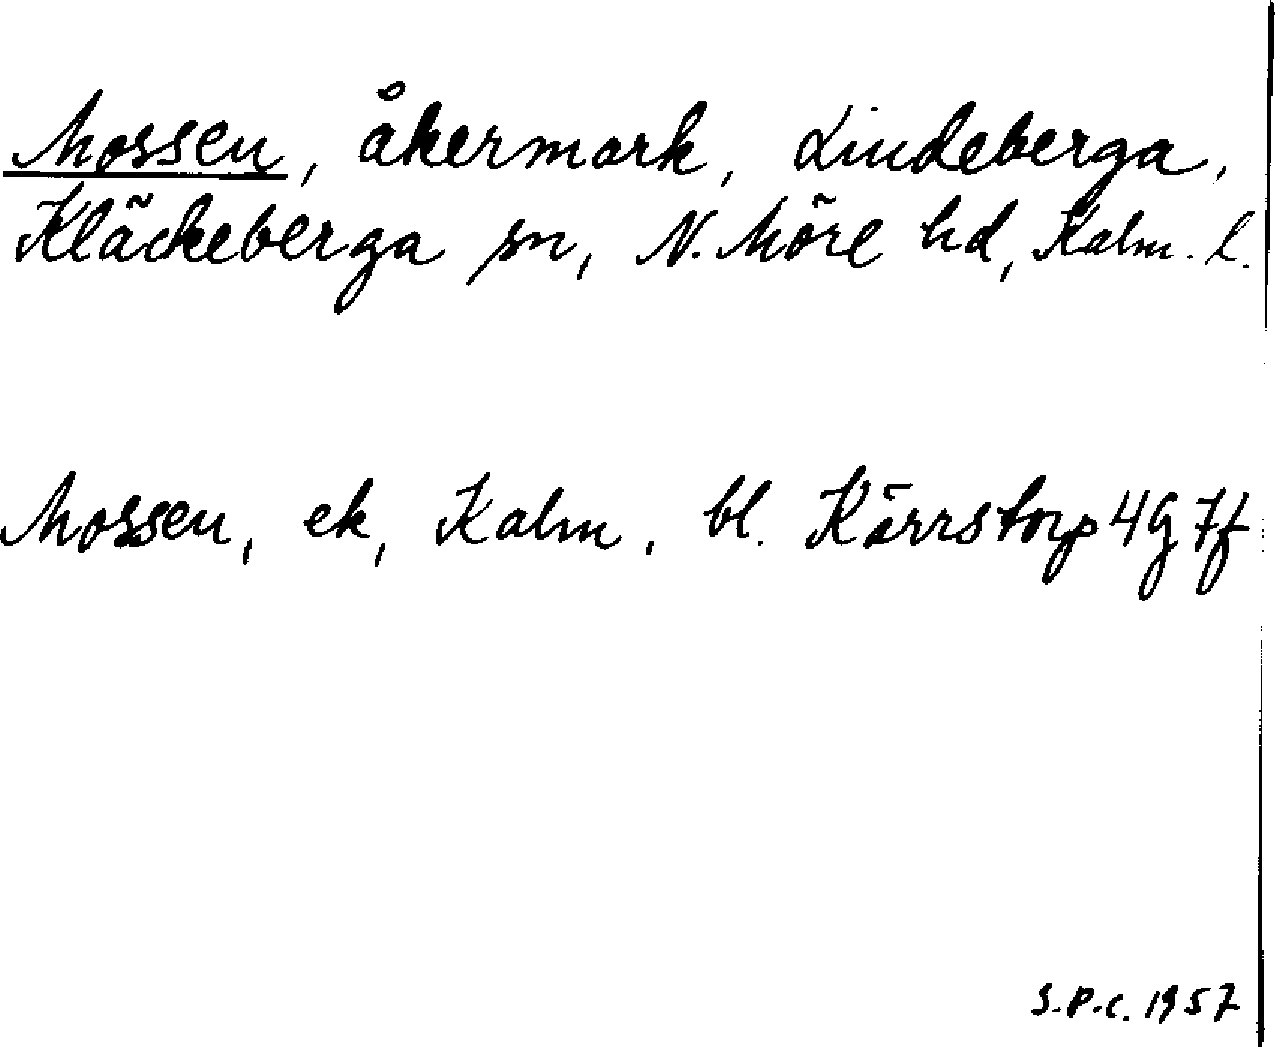 Mossen, åkermark, Lindeberga,
Kläckeberga sn, N. Möre hd, Kalm. l.
Mossen, ek, Kalm, bl. Kärrstorp 4G 7f
S.P.C. 1957